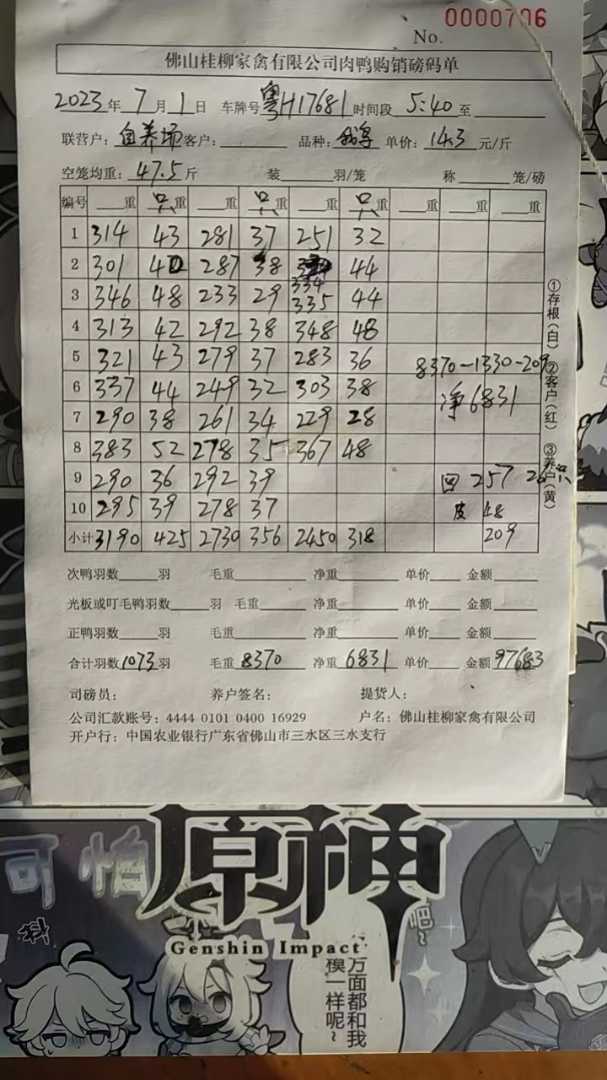 No. 0000706
佛山桂柳家禽有限公司肉鸭购销磅码单
2023年 7月 1日 车牌号 粤H17681 时间段 5:40 至
联营户: 自养场 客户: 品种: 单价: 14.3 元/斤
空笼均重: 47.5 斤 装 羽/笼 称 笼/磅
编号 重 只重 重 只重 重 只重 重 重 重
1 314 43 281 37 251 32
2 301 40 287 38 334 44
3 346 48 233 29 335 44
4 313 42 292 38 348 48
5 321 43 279 37 283 36
8370-1330-209
6 337 44 249 32 303 38 净6831
7 290 38 261 34 229 28
8 383 52 278 35 367 48
9 290 36 292 39 回 257 26只
10 295 39 278 37 皮 48
小计 3190 425 2730 356 2450 318 209
①存根(白)
②客户(红)
③养户(黄)
次鸭羽数 羽 毛重 净重 单价 金额
光板或叮毛鸭羽数 羽 毛重 净重 单价 金额
正鸭羽数 羽 毛重 净重 单价 金额
合计羽数 1073 羽 毛重 8370 净重 6831 单价 金额 97683
司磅员: 养户签名: 提货人:
公司汇款账号: 4444 0101 0400 16929 户名: 佛山桂柳家禽有限公司
开户行: 中国农业银行广东省佛山市三水区三水支行
可怕
原神
Genshin Impact
吧~
万面都和我
模一样呢~